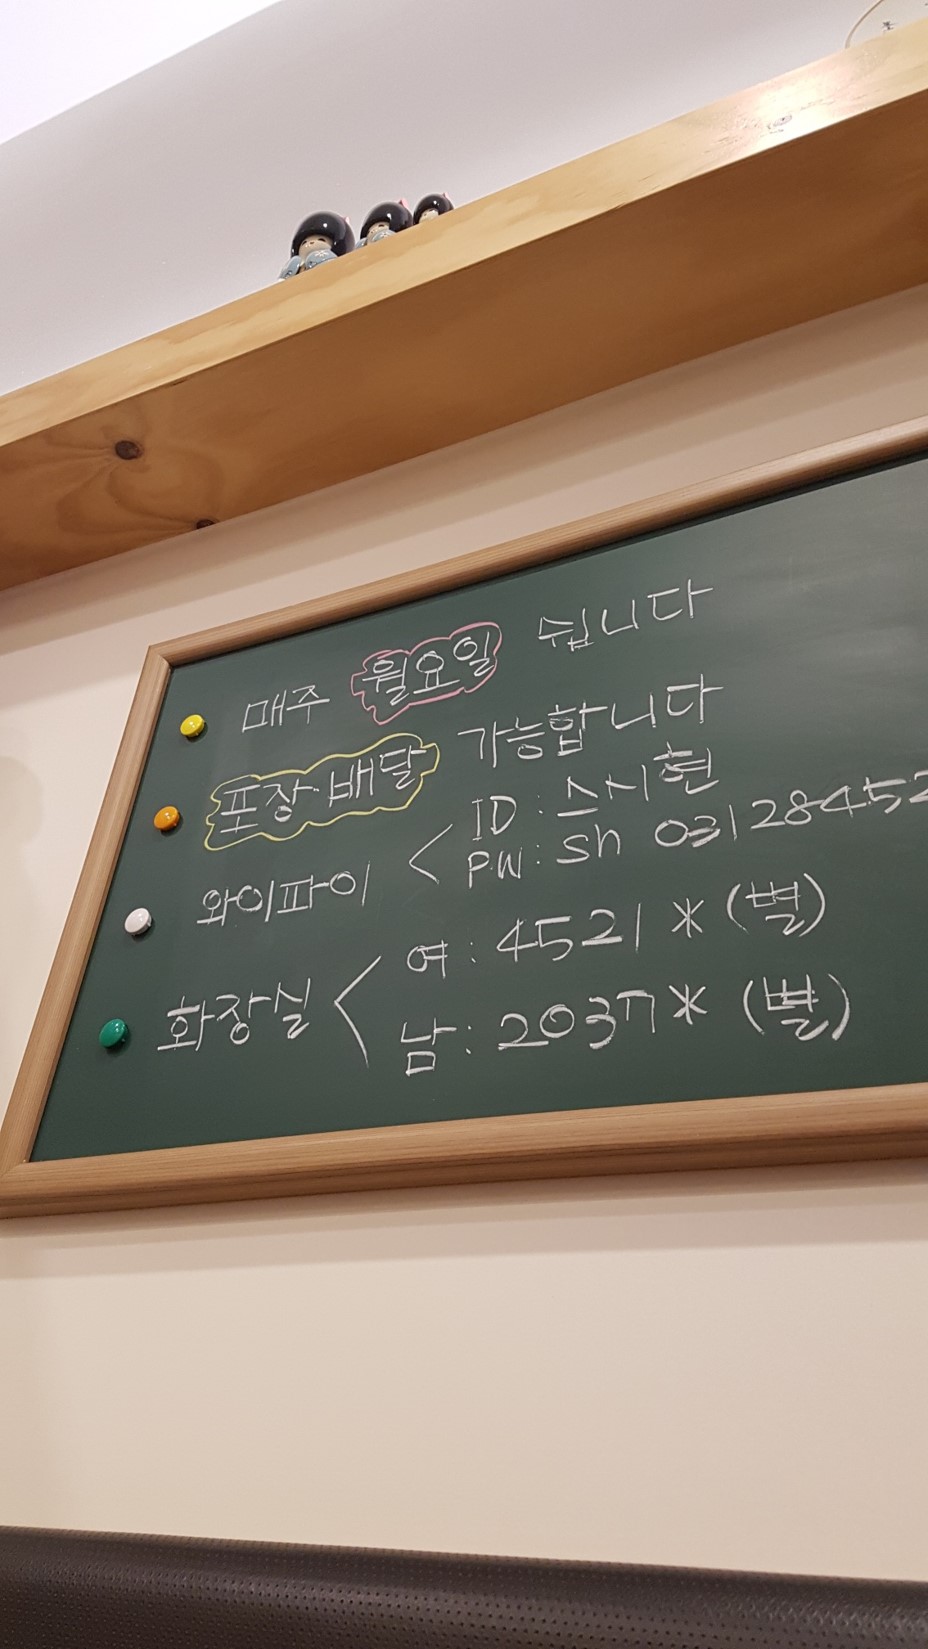 매주 월요일 쉽니다
포장·배달 가능합니다
와이파이 < ID : 스시현
PW : Sh 03128452
화장실 < 여 : 4521 * (별)
남 : 2037 * (별)